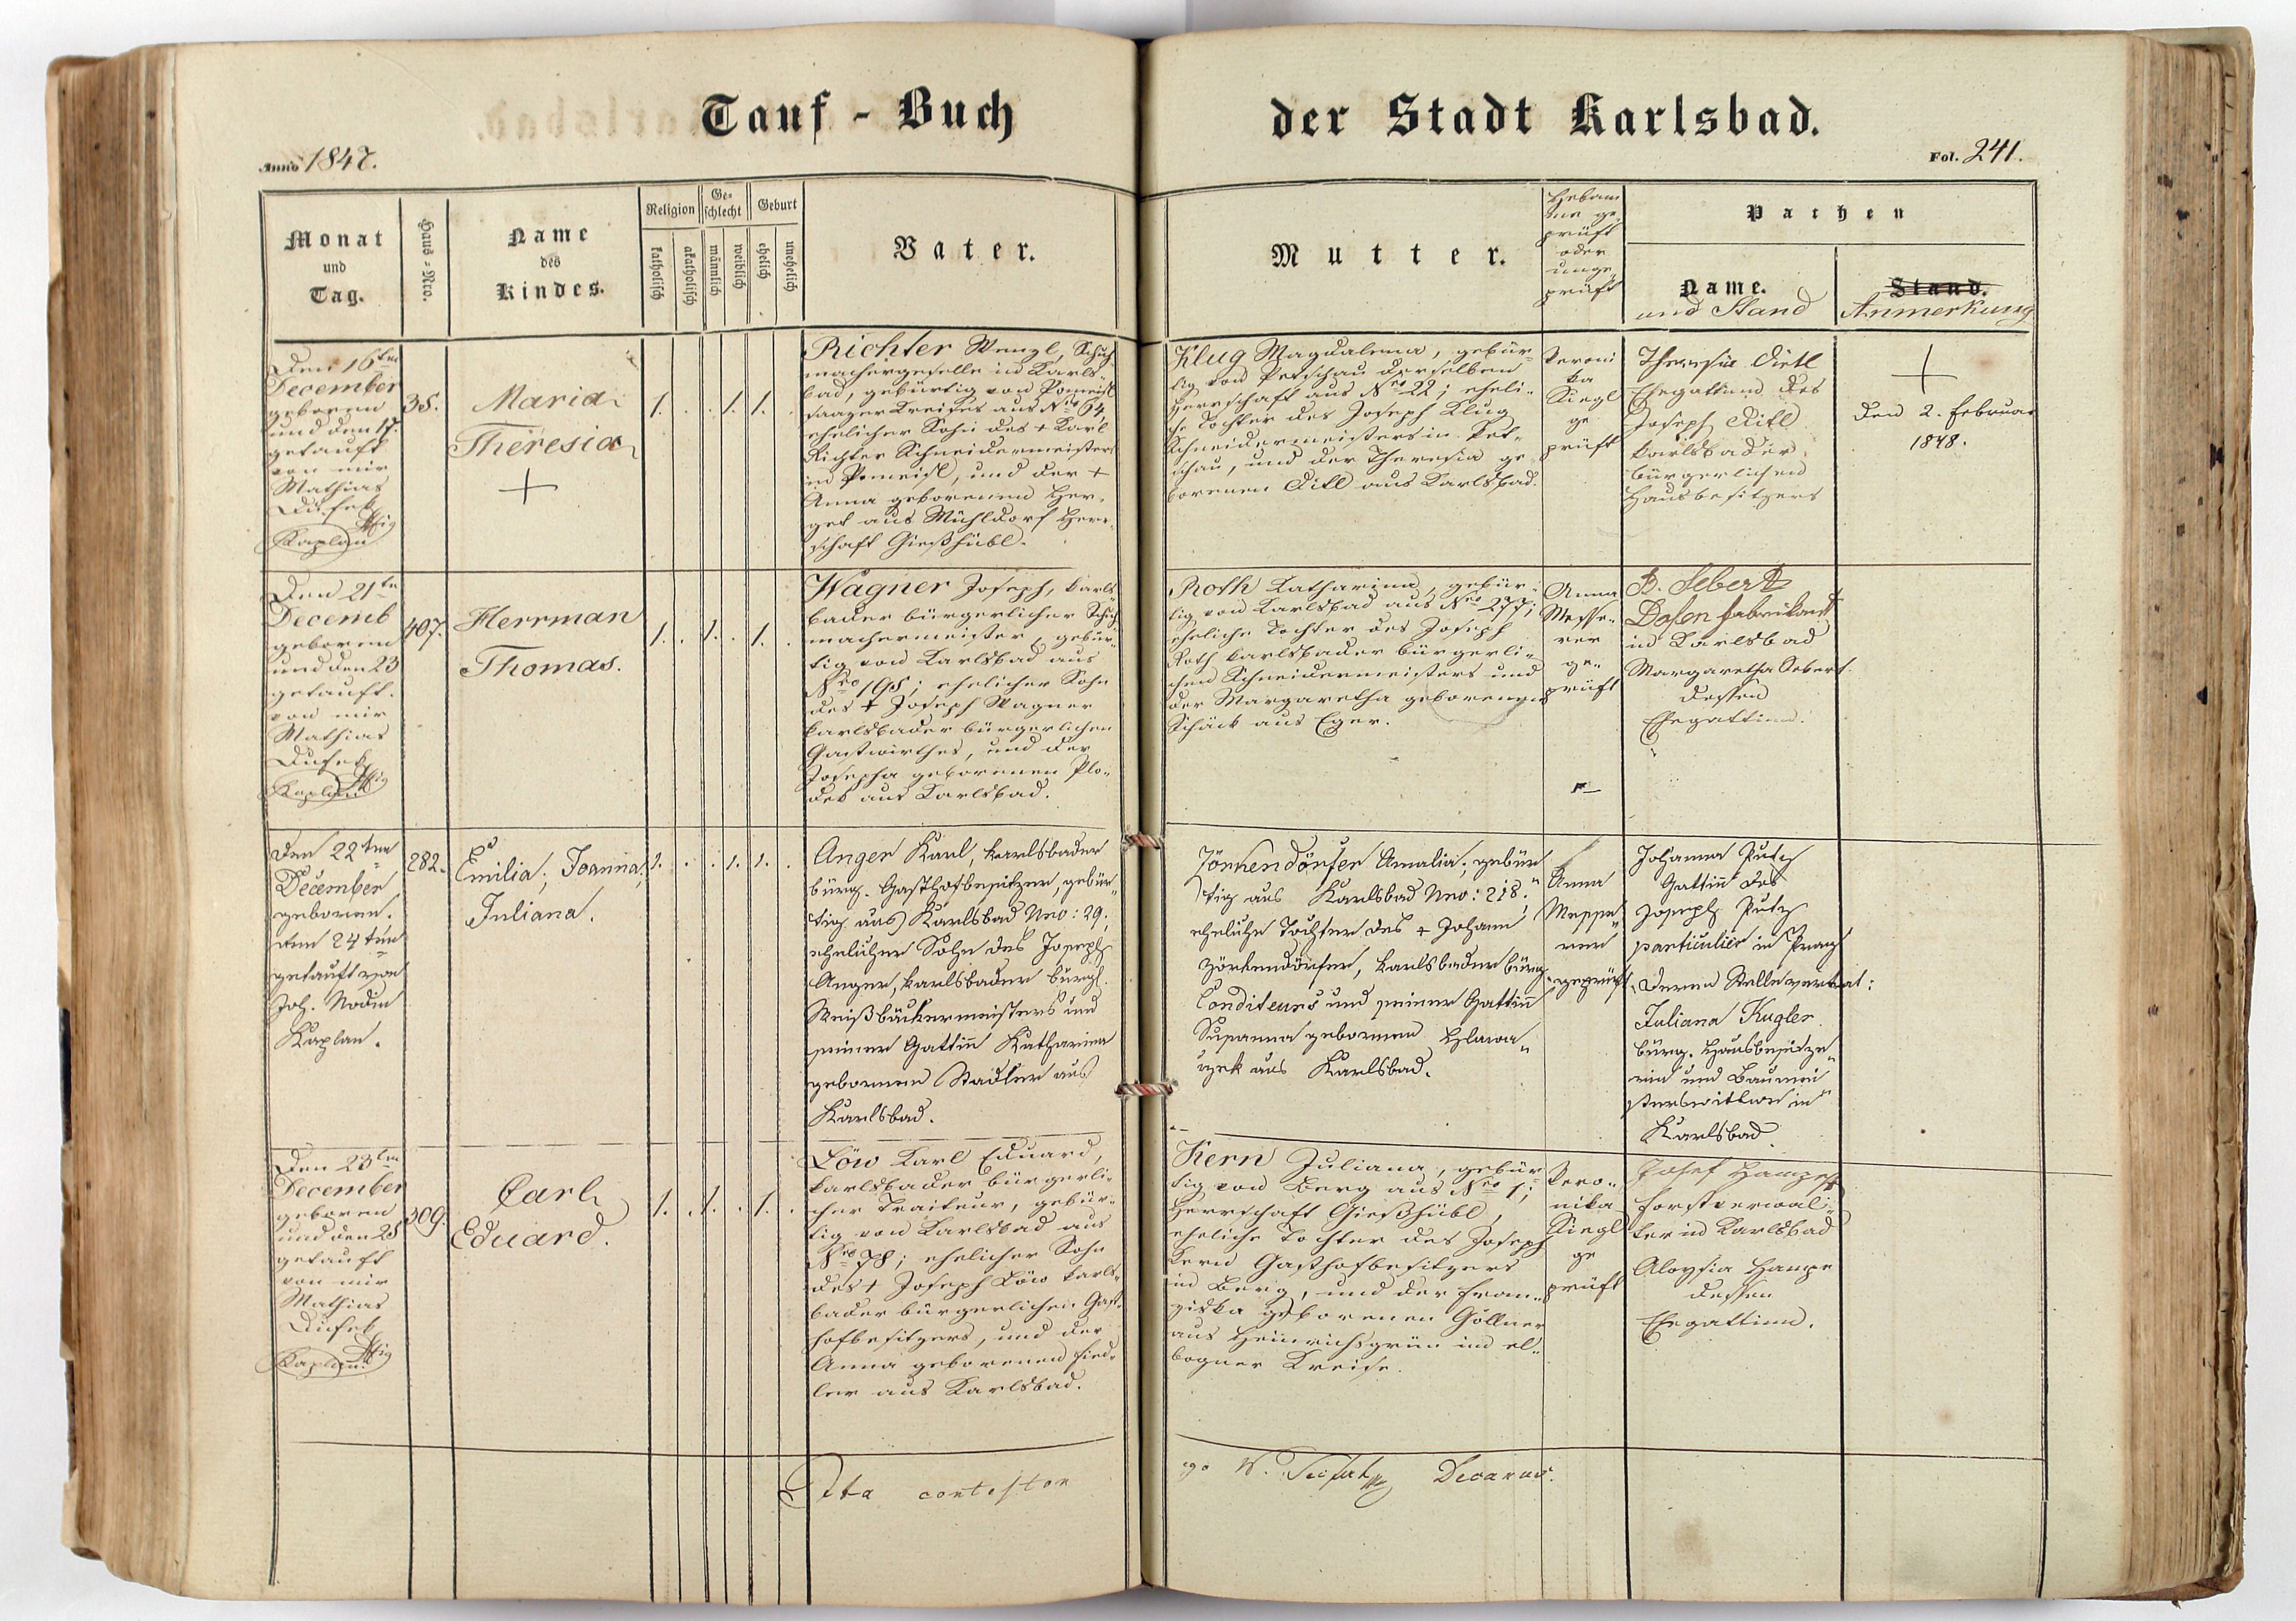 Tauf - Buch
der Stadt Karlsbad.
Anno 1847.
Fol. 241.
Monat
und
Tag.
Haus-Nro.
Name
des
Kindes.
Religion
katholisch
akatholisch
Ge-
schlecht
männlich
weiblich
Geburt
ehelich
unehelich
Vater.
Mutter.
Hebam
me ge-
prüft
oder
unge-
prüft
Pathen
Name.
und Stand
Stand.
Anmerkung
Den 16ten
December
geboren
und den 17.
getauft
von mir
Mathias
Kaplan
35.
Maria
Theresia
+
1. . . 1. 1. .
Richter Wenzl, Schuh-
machergeselle in Karls-
bad, gebürtig von Pomeisl
Saazer Kreises aus Nro 64,
ehelicher Sohn des + Karl
Richter Schneidermeisters
in Pomeisl, und der +
Anna geborenen Her-
get aus Mühldorf Herr-
schaft Gießhübl.
Klug Magdalena, gebür-
tig von Petschau derselben
Herrschaft aus Nro 22; eheli-
che Tochter des Joseph Klug
Schneidermeisters in Pet-
schau, und der Theresia ge-
borenen Ditl aus Karlsbad.
Veroni
ka
Siegl
ge
prüft
Theresia Dietl
Ehegattinn des
Joseph Ditl
Karlsbader
bürgerlichen
Hausbesitzers
+
den 2. Februar
1848.
Den 21ten
Decemb
geboren
und den 23
getauft.
von mir
Mathias
Kaplan
407.
Herrman
Thomas.
1. . 1. . 1. .
Wagner Joseph, Karls-
bader bürgerlicher Schuh-
machermeister, gebür-
tig von Karlsbad aus
Nro 198; ehelicher Sohn
des + Joseph Wagner
Karlsbader bürgerlichen
Gastwirthes, und der
Josepha geborenen Plo-
der aus Karlsbad.
Roth Katharina, gebür-
tig von Karlsbad aus Nro 277;
eheliche Tochter des Joseph
Roth Karlsbader bürgerli-
chen Schneidermeisters und
der Margaretha geborenen
Schäck aus Eger.
Anna
Messe-
rer
ge-
prüft
B. Sebert
Dosenfabrikant
in Karlsbad
Margaretha Sebert
dessen
Ehegattinn.
Den 22ten
December
geboren.
den 24ten
getauft von
Joh. Nodin
Kaplan.
282.
Emilia; Joanna;
Juliana.
1. . . 1. 1. .
Anger Karl, Karlsbader
bürg. Gasthofbesitzer, gebür-
tig aus Karlsbad Nro: 29;
ehelicher Sohn des Joseph
Anger, Karlsbader bürgl.
Weißbäckermeisters und
seiner Gattinn Katharina
gebornen Stadler aus
Karlsbad.
Zörkendörfer Amalia; gebür-
tig aus Karlsbad Nro: 218;
eheliche Tochter des + Johann
Zörkendörfer, Karlsbader bürg.
Conditeurs und seiner Gattinn
Susanna gebornen Hlawa-
czek aus Karlsbad.
Anna
Messe-
rer
geprüft
Johanna Putz
Gattinn des
Joseph Putz
particulier in Prag
Deren Stellevertrat:
Juliana Kugler
bürg. Hausbesitze-
rin und Baumei-
sterswittwe in
Karlsbad.
Den 23ten
December
geboren
und den 28
getauft
von mir
Mathias
Kaplan
309.
Carl
Eduard.
1. . 1. . 1. .
Löw Karl Eduard,
Karlsbader bürgerli-
cher Traiteur, gebür-
tig von Karlsbad aus
Nro 78; ehelicher Sohn
des + Joseph Löw Karls-
bader bürgerlichen Gast-
hofbesitzers, und der
Anna geborenen Fied-
ler aus Karlsbad.
Kern Juliana, gebür-
tig von Berg aus Nro 1;
Herrschaft Gießhübl,
eheliche Tochter des Joseph
Kern Gasthofbesitzers
in Berg, und der Fran-
ziska geborenen Göllner
aus Heinrichsgrün im el-
bogner Kreise.
Vero-
nika
Siegl
ge
prüft
Josef Hampe
Forstverwal-
ter in Karlsbad
Aloysia Hampe
dessen
Ehegattinn.
Ita contestor
Decanus.